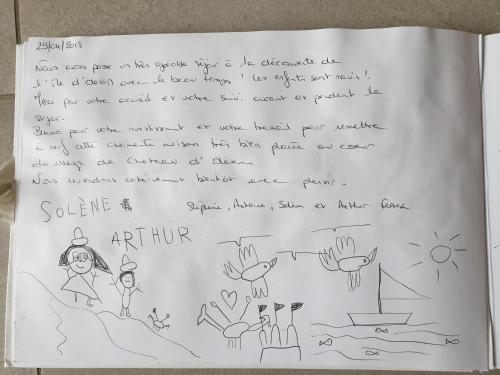 29/04/2018
Nous avons passé un très agréable séjour à la découverte de
l'île d'oléron avec le beau temps ! Les enfants sont ravis !
Merci par votre accueil et votre suivi avant et pendant le
séjour.
Bravo pour votre investissement et votre travail pour remettre
à neuf cette charmante maison très bien placée au coeur
du village de Chateau d'Oléron
Nous reviendrons certainement bientôt avec plaisir.
SOLÈNE
Stéphanie, Antoine, Solène et Arthur
ARTHUR